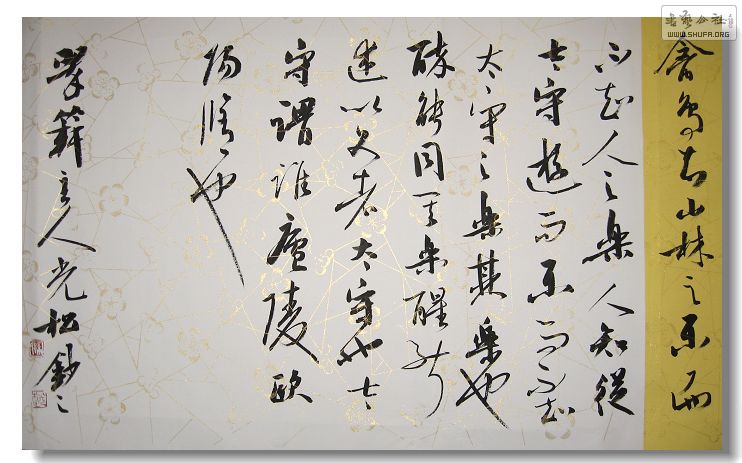 禽鳥知山林之樂而
不知人之樂人知從
太守遊而樂而不知
太守之樂其樂也
醉能同其樂醒能
述以文者太守也太
守謂誰廬陵歐
陽脩也
主人光松鈔之
书艺公社
WWW.SHUFA.ORG